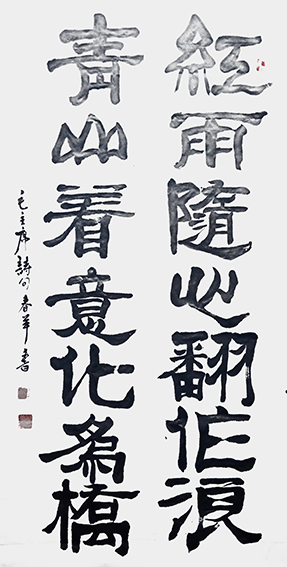 紅雨隨心翻作浪
青山着意化為橋
毛主席詩句 春 書